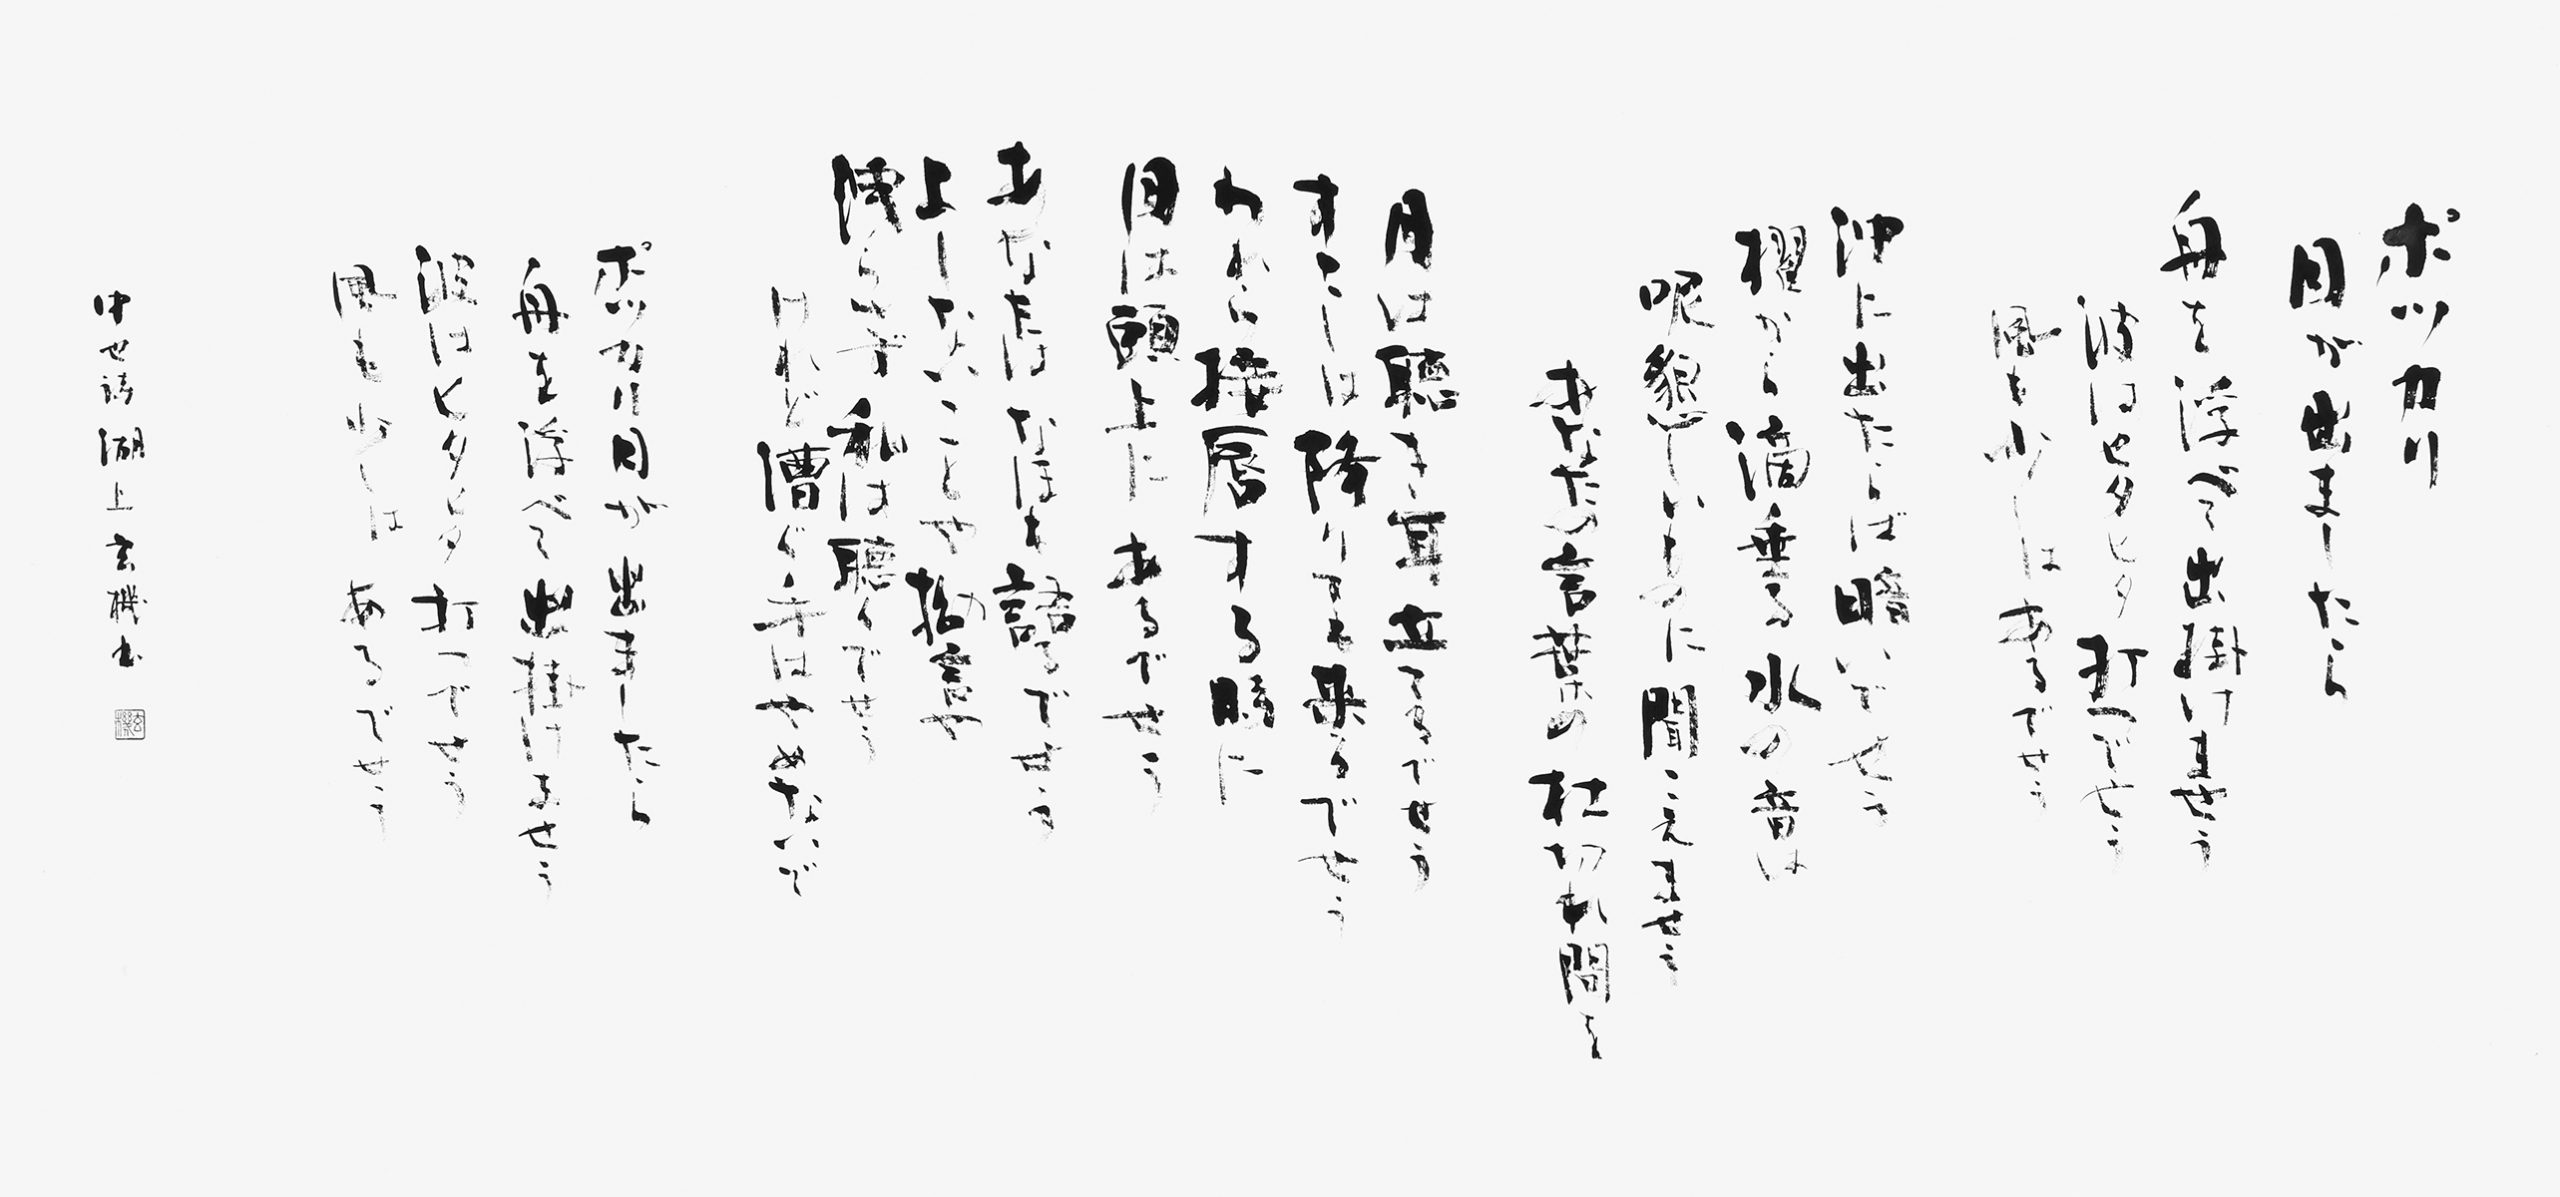 ポツカリ
月が出ましたら
舟を浮べて出掛けませう
波はヒタヒタ打つでせう
風も少しはあるでせう
沖に出たらば暗いでせう
櫂から滴垂る水の音は
昵懇しいものに聞こえませう
あなたの言葉の杜切れ間を
月は聴き耳立てるでせう
すこしは降りても来るでせう
われら接唇する時に
月は頭上にあるでせう
あなたはなほも語るでせう
よしないことや拗言や
洩らさず私は聴くでせう
けれど漕ぐ手はやめないで
ポツカリ月が出ましたら
舟を浮べて出掛けませう
波はヒタヒタ打つでせう
風も少しはあるでせう
中也詩 湖上 玄機書
玄機